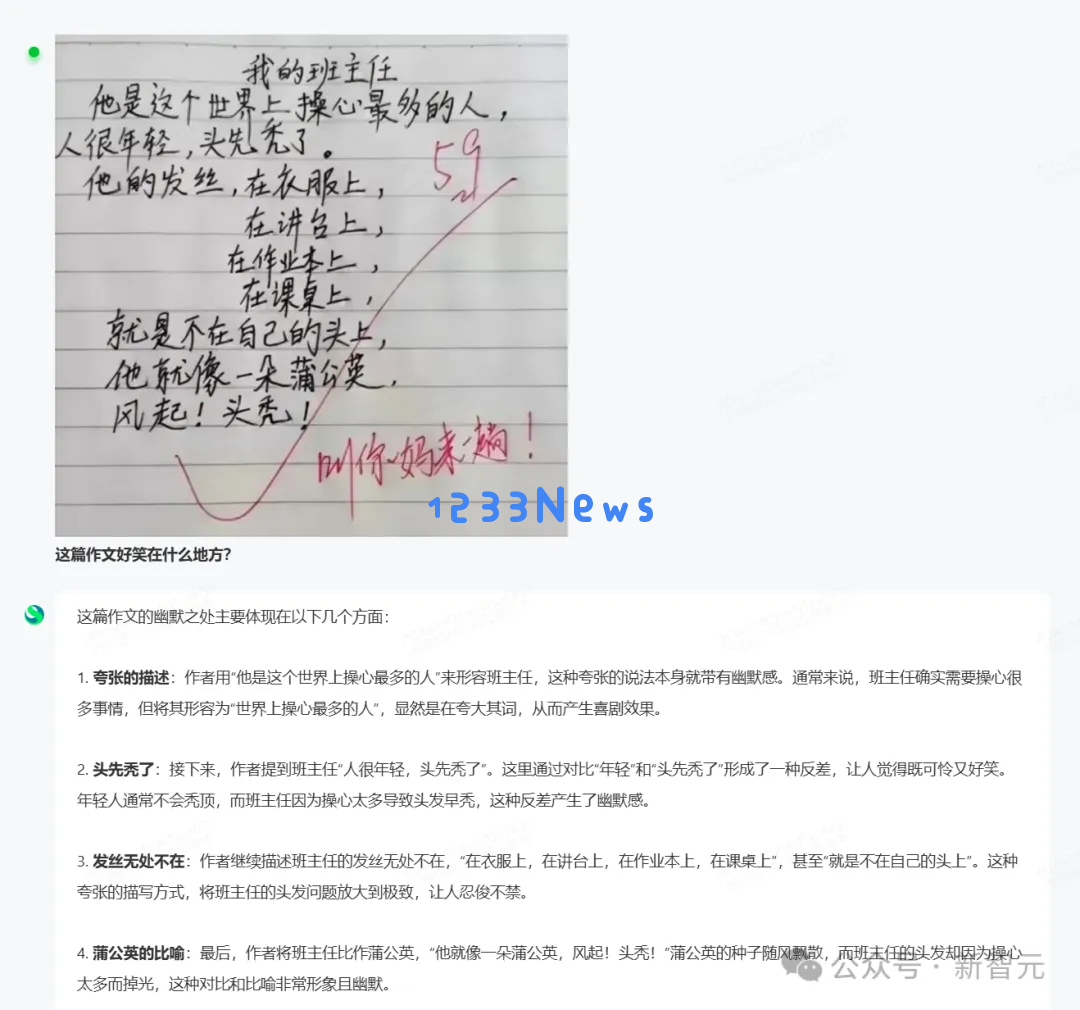 我的班主任
他是这个世界上操心最多的人，
人很年轻，头先秃了。
59
他的发丝，在衣服上，
在讲台上，
在作业本上，
在课桌上，
就是不在自己的头上，
他就像一朵蒲公英，
风起！头秃！
叫你妈来一趟！
1233News
这篇作文好笑在什么地方？
这篇作文的幽默之处主要体现在以下几个方面：
1. 夸张的描述：作者用“他是这个世界上操心最多的人”来形容班主任，这种夸张的说法本身就带有幽默感。通常来说，班主任确实需要操心很
多事情，但将其形容为“世界上操心最多的人”，显然是在夸大其词，从而产生喜剧效果。
2. 头先秃了：接下来，作者提到班主任“人很年轻，头先秃了”。这里通过对比“年轻”和“头先秃了”形成了一种反差，让人觉得既可怜又好笑。
年轻人通常不会秃顶，而班主任因为操心太多导致头发早秃，这种反差产生了幽默感。
3. 发丝无处不在：作者继续描述班主任的发丝无处不在，“在衣服上，在讲台上，在作业本上，在课桌上”，甚至“就是不在自己的头上”。这种
夸张的描写方式，将班主任的头发问题放大到极致，让人忍俊不禁。
4. 蒲公英的比喻：最后，作者将班主任比作蒲公英，“他就像一朵蒲公英，风起！头秃！“蒲公英的种子随风飘散，而班主任的头发却因为操心
太多而掉光，这种对比和比喻非常形象且幽默。
公众号 · 新智元